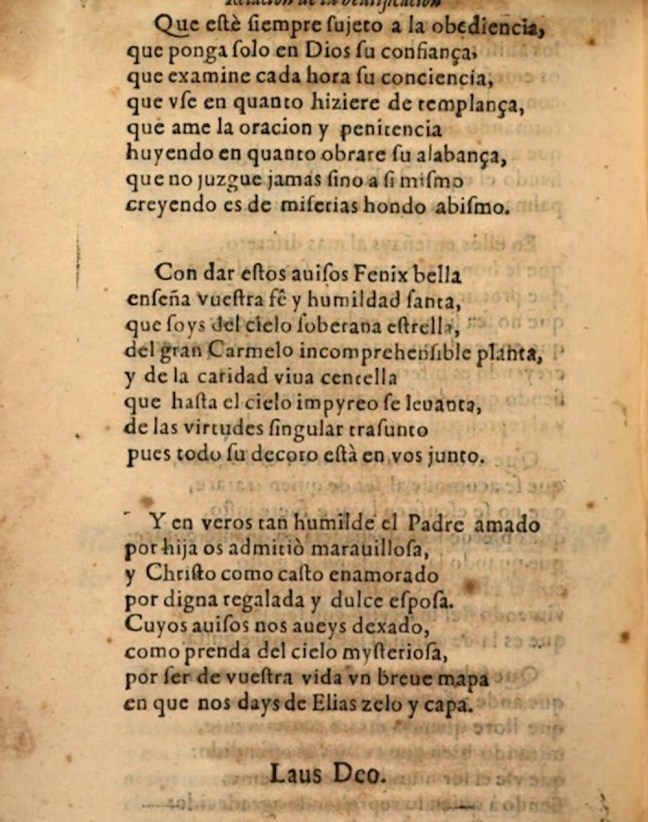 Relacion de la beatificacion
Que estè siempre sujeto a la obediencia,
que ponga solo en Dios su confiança,
que examine cada hora su conciencia,
que vse en quanto hiziere de templança,
que ame la oracion y penitencia
huyendo en quanto obrare su alabança,
que no juzgue jamas sino a si mismo
creyendo es de miserias hondo abismo.
Con dar estos auisos Fenix bella
enseña vuestra fê y humildad santa,
que soys del cielo soberana estrella,
del gran Carmelo incomprehensible planta,
y de la caridad viua centella
que hasta el cielo impyreo se leuanta,
de las virtudes singular trasunto
pues todo su decoro està en vos junto.
Y en veros tan humilde el Padre amado
por hija os admitiò marauillosa,
y Christo como casto enamorado
por digna regalada y dulce esposa.
Cuyos auisos nos aueys dexado,
como prenda del cielo mysteriosa,
por ser de vuestra vida vn breue mapa
en que nos days de Elias zelo y capa.
Laus Deo.